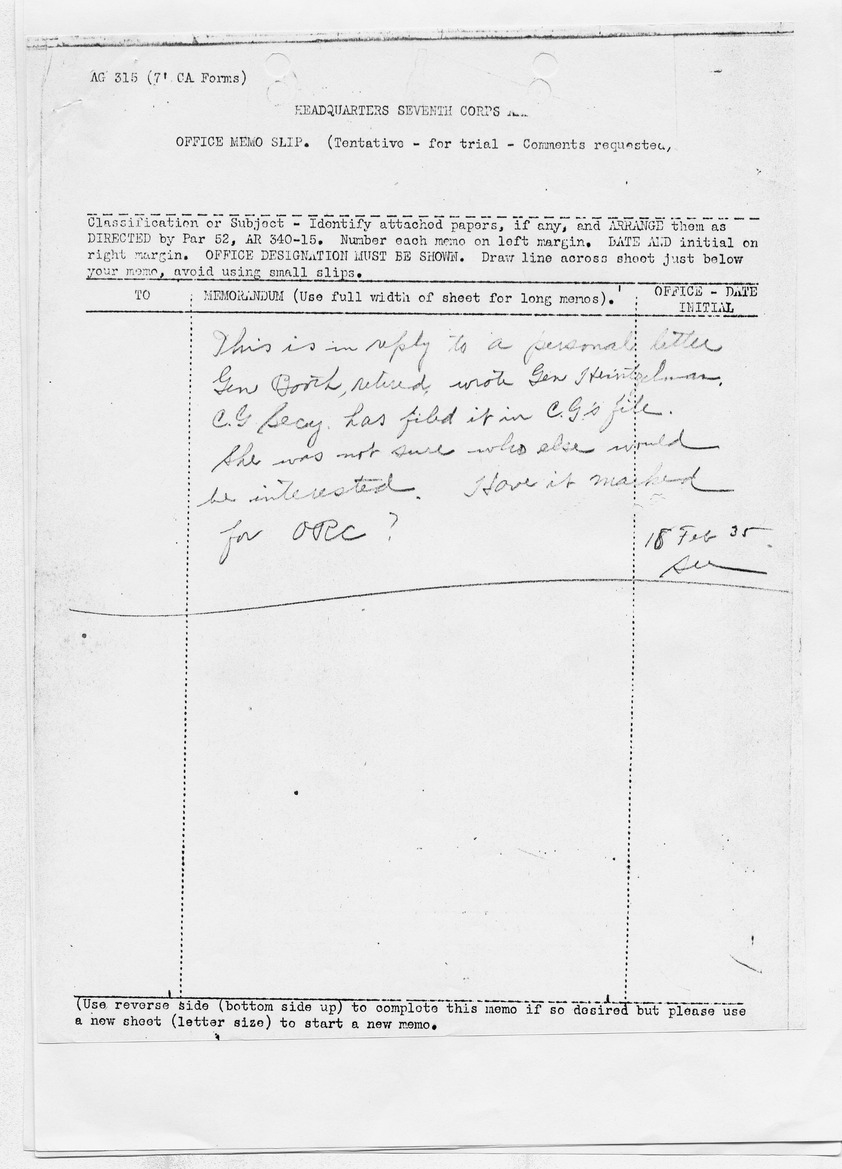 AG 315 (7' CA Forms)
HEADQUARTERS SEVENTH CORPS
OFFICE MEMO SLIP. (Tentative - for trial - Comments requested,
Classification or Subject - Identify attached papers, if any, and ARRANGE them as
DIRECTED by Par 52, AR 340-15. Number each memo on left margin. DATE AND initial on
right margin. OFFICE DESIGNATION MUST BE SHOWN. Draw line across sheet just below
your memo, avoid using small slips.
TO MEMORANDUM (Use full width of sheet for long memos). OFFICE - DATE
INITIAL
This is in reply to a personal letter
Gen Booth, retired, wrote Gen Heintzelman.
C.G Secy. has filed it in C.G's file.
She was not sure who else would
be interested. Have it marked
for ORC?
18 Feb 35
(Use reverse side (bottom side up) to complete this memo if so desired but please use
a new sheet (letter size) to start a new memo.